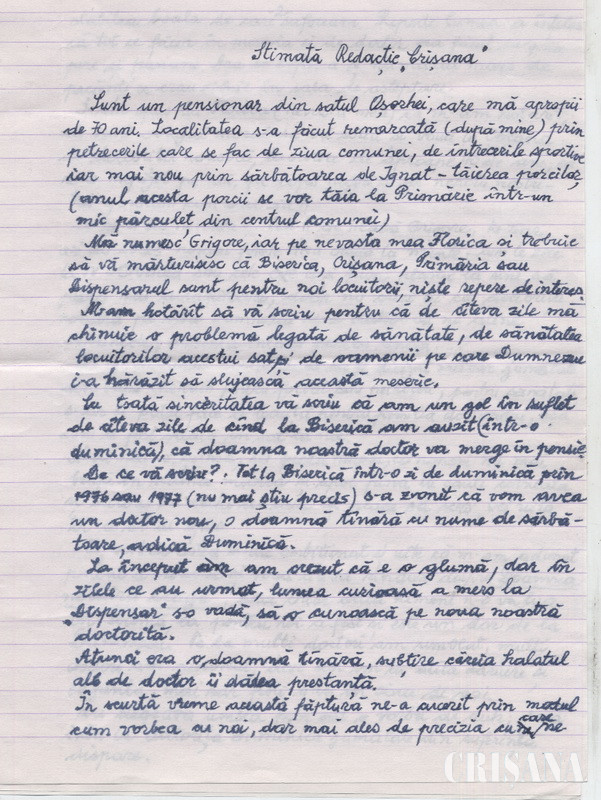 Stimată Redacție „Crișana”
Sunt un pensionar din satul Oșorhei, care mă apropii
de 70 ani. Localitatea s-a făcut remarcată (după mine) prin
petrecerile care se fac de ziua comunei, de întrecerile sportive
iar mai nou prin sărbătoarea de Ignat - tăierea porcilor,
(anul acesta porcii se vor tăia la Primărie într-un
mic părculeț din centrul comunii)
Mă numesc Grigore, iar pe nevasta mea Florica și trebuie
să vă mărturisesc că Biserica, Crișana, Primăria sau
Dispensarul sunt pentru noi locuitorii, niște repere de interes.
M-am hotărît să vă scriu pentru că de cîteva zile mă
chinuie o problemă legată de sănătate, de sănătatea
locuitorilor acestui sat, și de oamenii pe care Dumnezeu
i-a hărăzit să slujească această meserie.
Cu toată sinceritatea vă scriu că am un gol în suflet
de cîteva zile de cînd la Biserică am auzit (într-o
duminică), că doamna noastră doctor va merge în pensie.
De ce vă scriu?. Tot la Biserică într-o zi de duminică prin
1976 sau 1977 (nu mai știu precis) s-a zvonit că vom avea
un doctor nou, o doamnă tînără cu nume de sărbă-
toare, adică Duminică.
La început am crezut că e o glumă, dar în
zilele ce au urmat, lumea curioasă a mers la
"Dispensar" s-o vadă, să o cunoască pe noua noastră
doctoriță.
Atunci era o doamnă tînără, subțire căreia halatul
alb de doctor îi dădea prestanță.
În scurtă vreme această făptură ne-a cucerit prin modul
cum vorbea cu noi, dar mai ales de precizia cu care ne
CRISANA